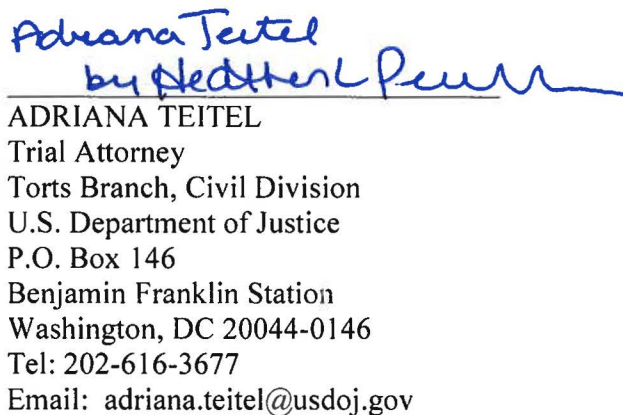 Adriana Teitel
by Heather L
ADRIANA TEITEL
Trial Attorney
Torts Branch, Civil Division
U.S. Department of Justice
P.O. Box 146
Benjamin Franklin Station
Washington, DC 20044-0146
Tel: 202-616-3677
Email: adriana.teitel@usdoj.gov